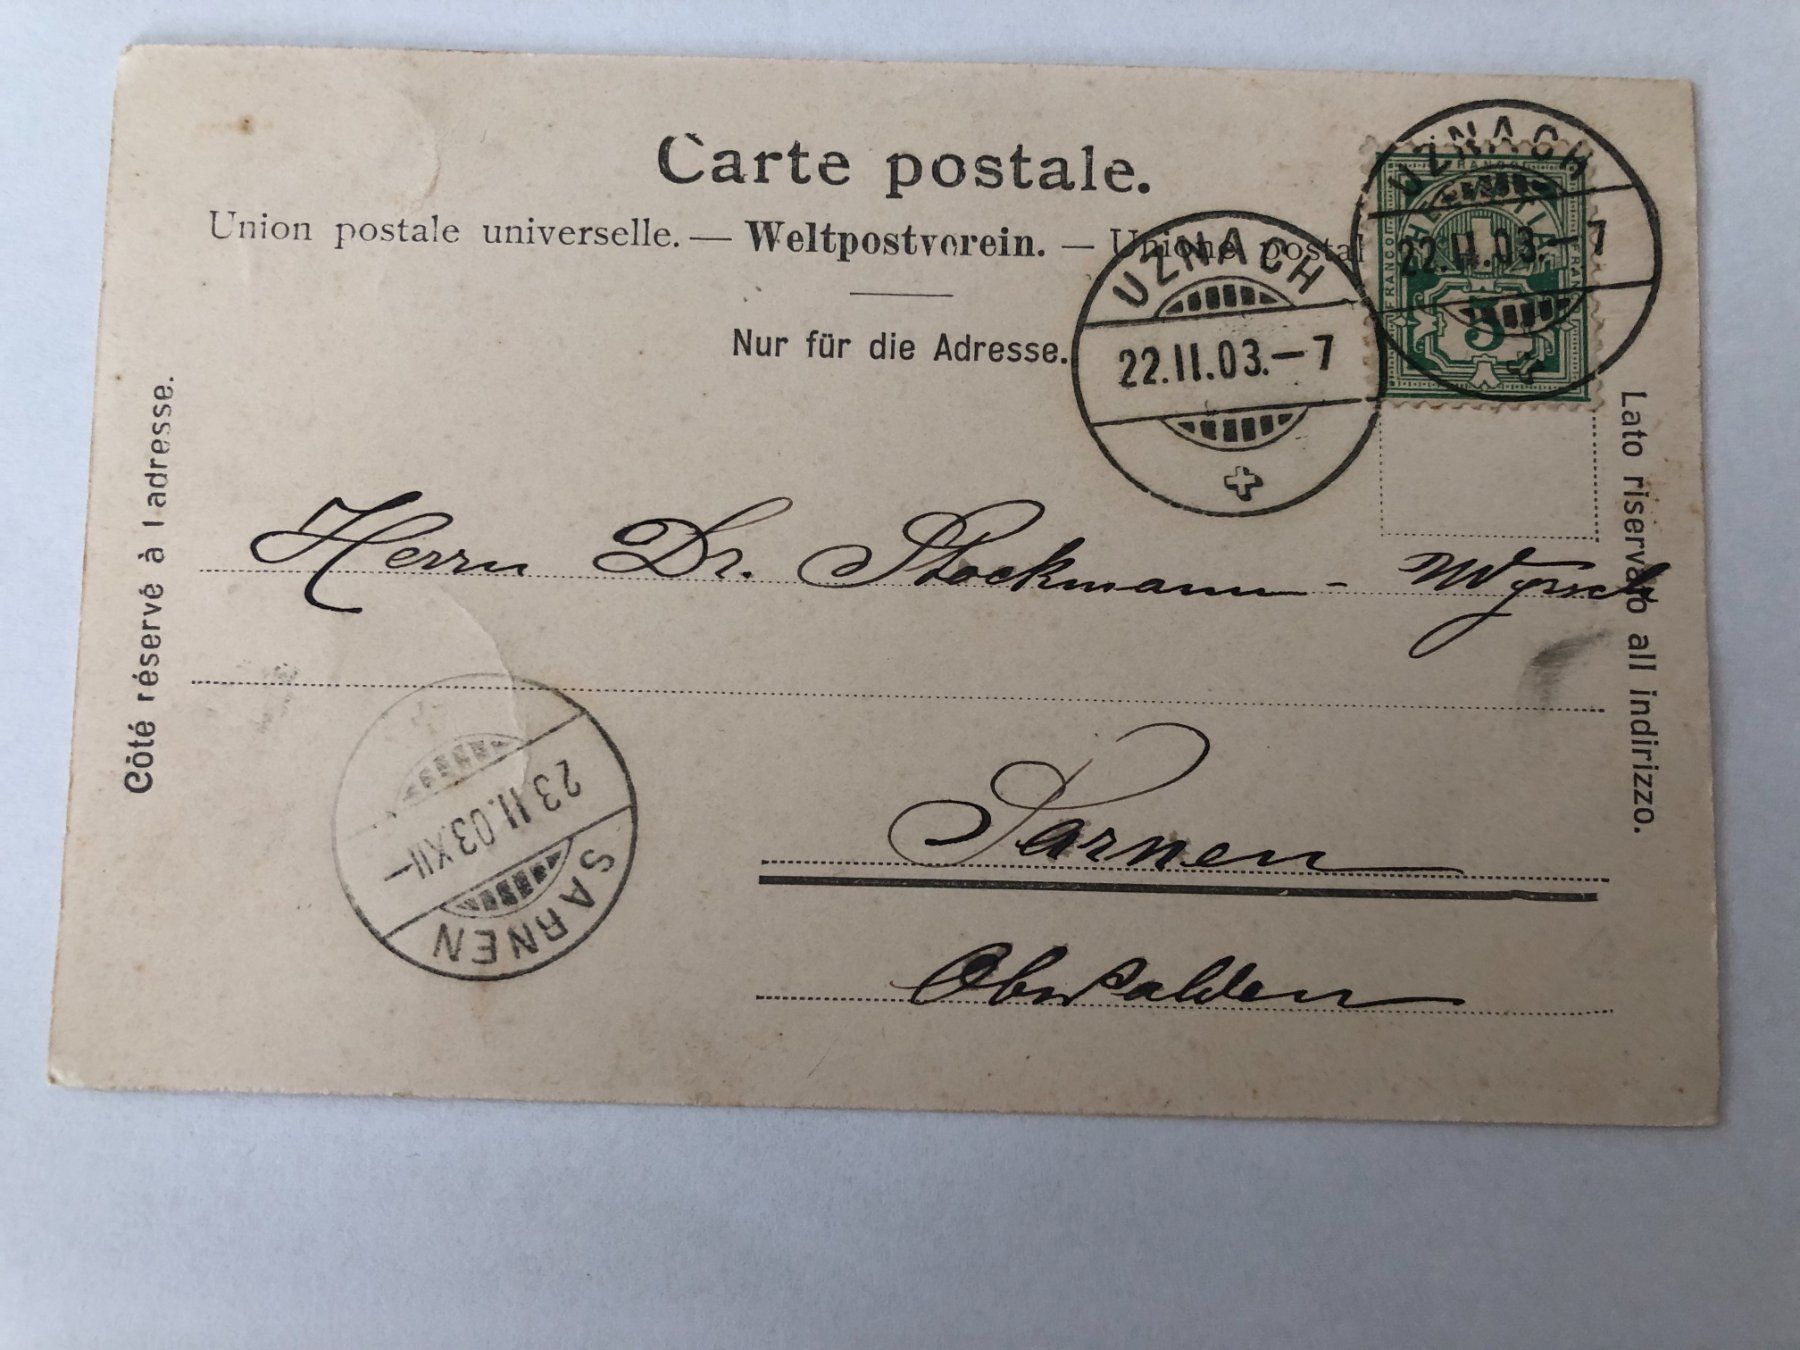 Carte postale.
Union postale universelle. — Weltpostverein. — Unione postal
Nur für die Adresse.
Côté réservé à l adresse.
Lato riservato all indirizzo.
UZNACH
22.II.03.–7
UZNACH
22.II.03.–7
FRANCO
HELVETIA
FRANCO
FRANCO
5
Herrn Dr. Stockmann - Wyrsch
Sarnen
Obwalden
23.II.03.XII–
SARNEN